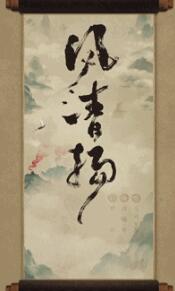 风清扬